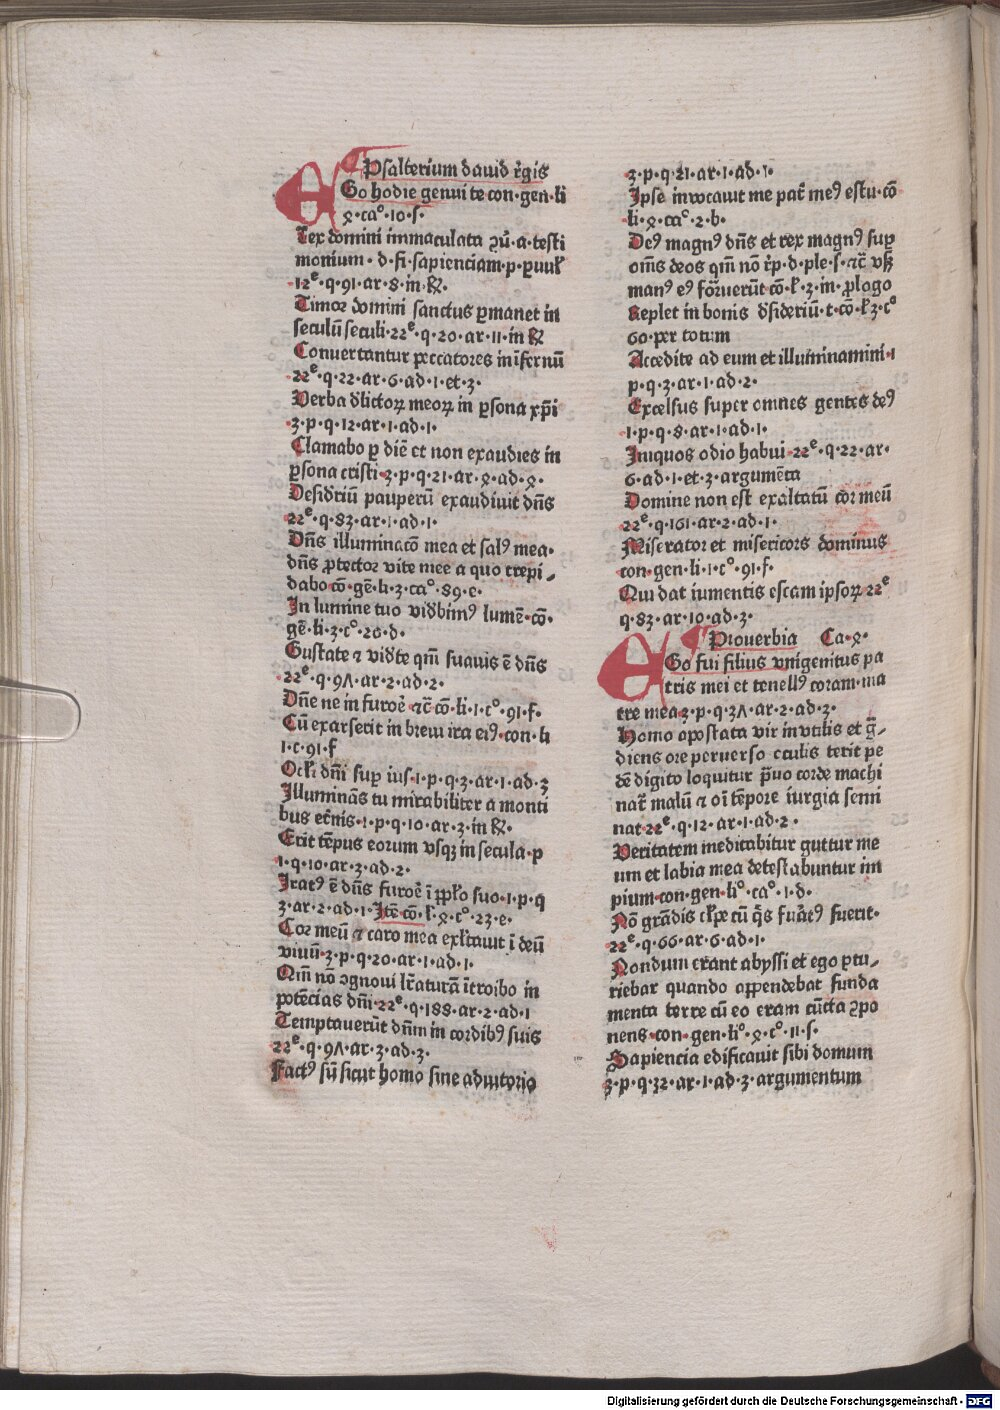 Psalterium dauid r̃gis
EGo hodie genui te con·gen·li
4·ca°·10·f·
Lex domini immaculata ꝯũ·a·testi
monium·d·fi·sapienciam·p·ꝑuul̃
12ᵉ·q·91·ar·8·in·℟·
Timor domini sanctus ꝑmanet in
seculũ seculi·22ᵉ·q·20·ar·11·in ℟
Conuertantur peccatores in ĩfernũ
22ᵉ·q·22·ar·6·ad·1·et·3·
Verba dl̃ictoꝝ meoꝝ in ꝑsona xp̃i
3·p·q·12·ar·1·ad·1·
Clamabo ꝑ diẽ et non exaudies in
ꝑsona cristi·3·p·q·21·ar·4·ad·4·
Desidriũ pauperũ exaudiuit dñs
22ᵉ·q·83·ar·1·ad·1·
Dñs illuminacõ mea et salꝰ mea·
dñs ꝓtector vite mee a quo trepi
dabo cõ·gẽ·li·3·ca°·89·c·
In lumine tuo vidb̃imꝰ lumẽ·cõ·
gẽ·li·3·c°·20·d·
Gustate ⁊ vidt̃e qm̃ suauis ẽ dñs
22ᵉ·q·97·ar·2·ad·2·
Dñe ne in furoẽ ⁊c̃ cõ·li·1·c°·91·f·
Cũ exarserit in breui ira eiꝰ·con·li
1·c·91·f
Ocl̃i dñi sup ius·1·p·q·3·ar·1·ad·3
Illuminãs tu mirabiliter a monti
bus et̃nis·1·p·q·10·ar·3·in ℟·
Erit tẽpus eorum vsqꝫ in secula·p
1·q·10·ar·3·ad·2·
Iratꝰ ẽ dñs furoẽ ĩ pp̃lo suo·1·p·q
3·ar·2·ad·1·Itẽ cõ·l̃·4·c°·23·e·
Cor meũ ⁊ caro mea exl̃tauit ĩ deũ
viuũ·3·p·q·20·ar·1·ad·1·
Qm̃ nõ ꝯgnoui lr̃aturã ĩtroibo in
potẽcias dñi·22ᵉ·q·188·ar·2·ad·1
Temptauerũt dñm in cordibꝰ suis
22ᵉ·q·97·ar·3·ad·3·
Factꝰ sũ sicut homo sine adiutorio
3·p·q·21·ar·1·ad·1·
Ipse inuocauit me pat̃ meꝰ es tu·cõ
li·4·ca°·2·b·
Deꝰ magnꝰ dñs et rex magnꝰ sup
oms̃ deos qm̃ nõ r̃p·d·ple·s·⁊c̃ vsꝫ
manꝰ eꝰ for̃uerũt·cõ·l̃·3·in·ꝓlogo
Replet in bonis dsideriũ·t·cõ·l̃ 3·c°
60·per totum
Accedite ad eum et illuminamini·1
p·q·3·ar·1·ad·2·
Excelsus super omnes gentes deꝰ
1·p·q·8·ar·1·ad·1·
Iniquos odio habui·22ᵉ·q·22·ar·
6·ad·1·et·3·argumẽta
Domine non est exaltatũ cor meũ
22ᵉ·q·161·ar·2·ad·1·
Miserator et misericors dominus
con·gen·li·1·c°·91·f·
Qui dat iumentis escam ipsoꝝ 22ᵉ
q·83·ar·10·ad·3·
Prouerbia Ca·4·
EGo fui filius vnigenitus pa
tris mei et tenellꝰ coram·ma
tre mea 3·p·q·37·ar·2·ad·3·
Homo apostata vir inutilis et g̃
diens ore peruerso oculis terit pe
dẽ digito loquitur p̃uo corde machi
nat̃ malũ ⁊ oĩ tẽpore iurgia semi
nat·22ᵉ·q·12·ar·1·ad·2·
Veritatem meditabitur guttur me
um et labia mea detestabuntur im
pium·con·gen·li°·ca°·1·d·
Nõ grãdis cl̃pe cũ q̃s fuãtꝰ fuerit·
22ᵉ·q·66·ar·6·ad·1·
Nondum erant abyssi et ego ꝑtu
riebar quando appendebat funda
menta terre cũ eo eram cũcta ꝯpo
nens·con·gen·li°·4·c°·11·f·
Sapiencia edificauit sibi domum
3·p·q·32·ar·1·ad·3·argumentum
Digitalisierung gefördert durch die Deutsche Forschungsgemeinschaft - DFG